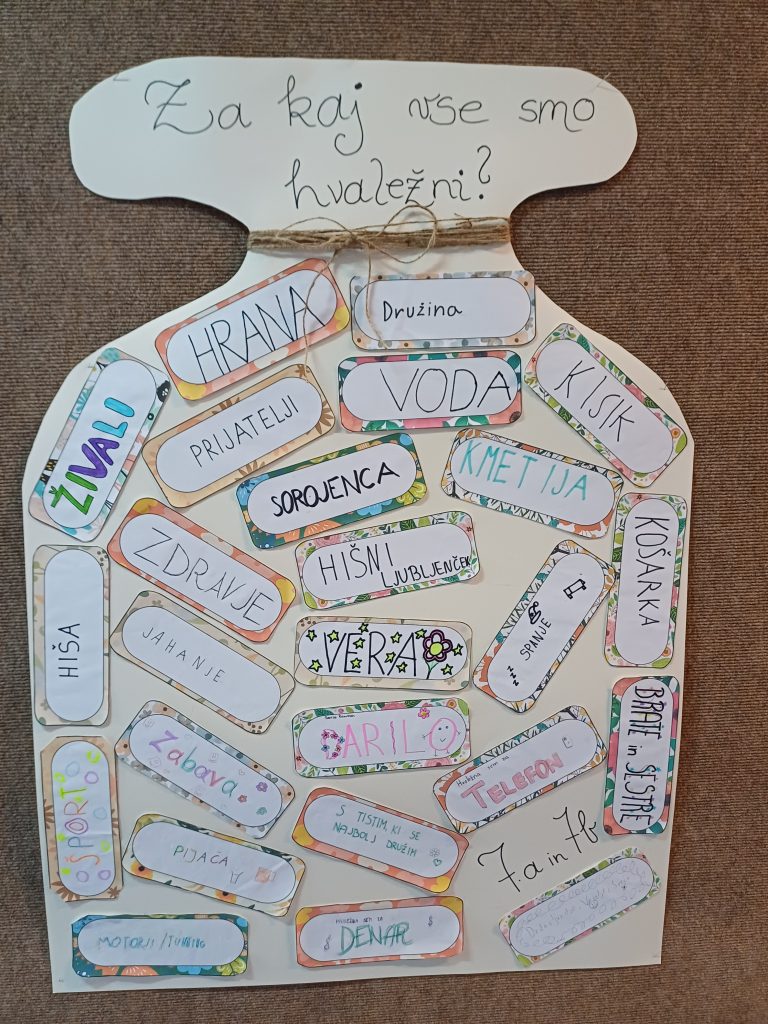 Za kaj vse smo
hvaležni?
HRANA
Družina
ŽIVALI
PRIJATELJI
VODA
KISIK
SOROJENCA
KMETIJA
ZDRAVJE
HIŠNI
LJUBLJENČEK
KOŠARKA
HIŠA
JAHANJE
VERA
zzz SPANJE
Zabava
DARILO
Hvaležna sem za
TELEFON
BRATE in SESTRE
ŠPORT
S TISTIM, KI SE
NAJBOLJ DRUŽIM
PIJAČA
7. a in 7b
MOTORJI/TUNING
DENAR